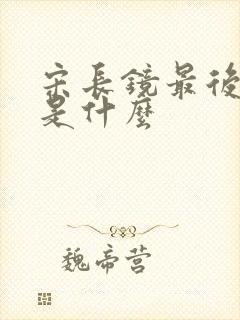 宋長鏡最後
是什麼
魏帝营